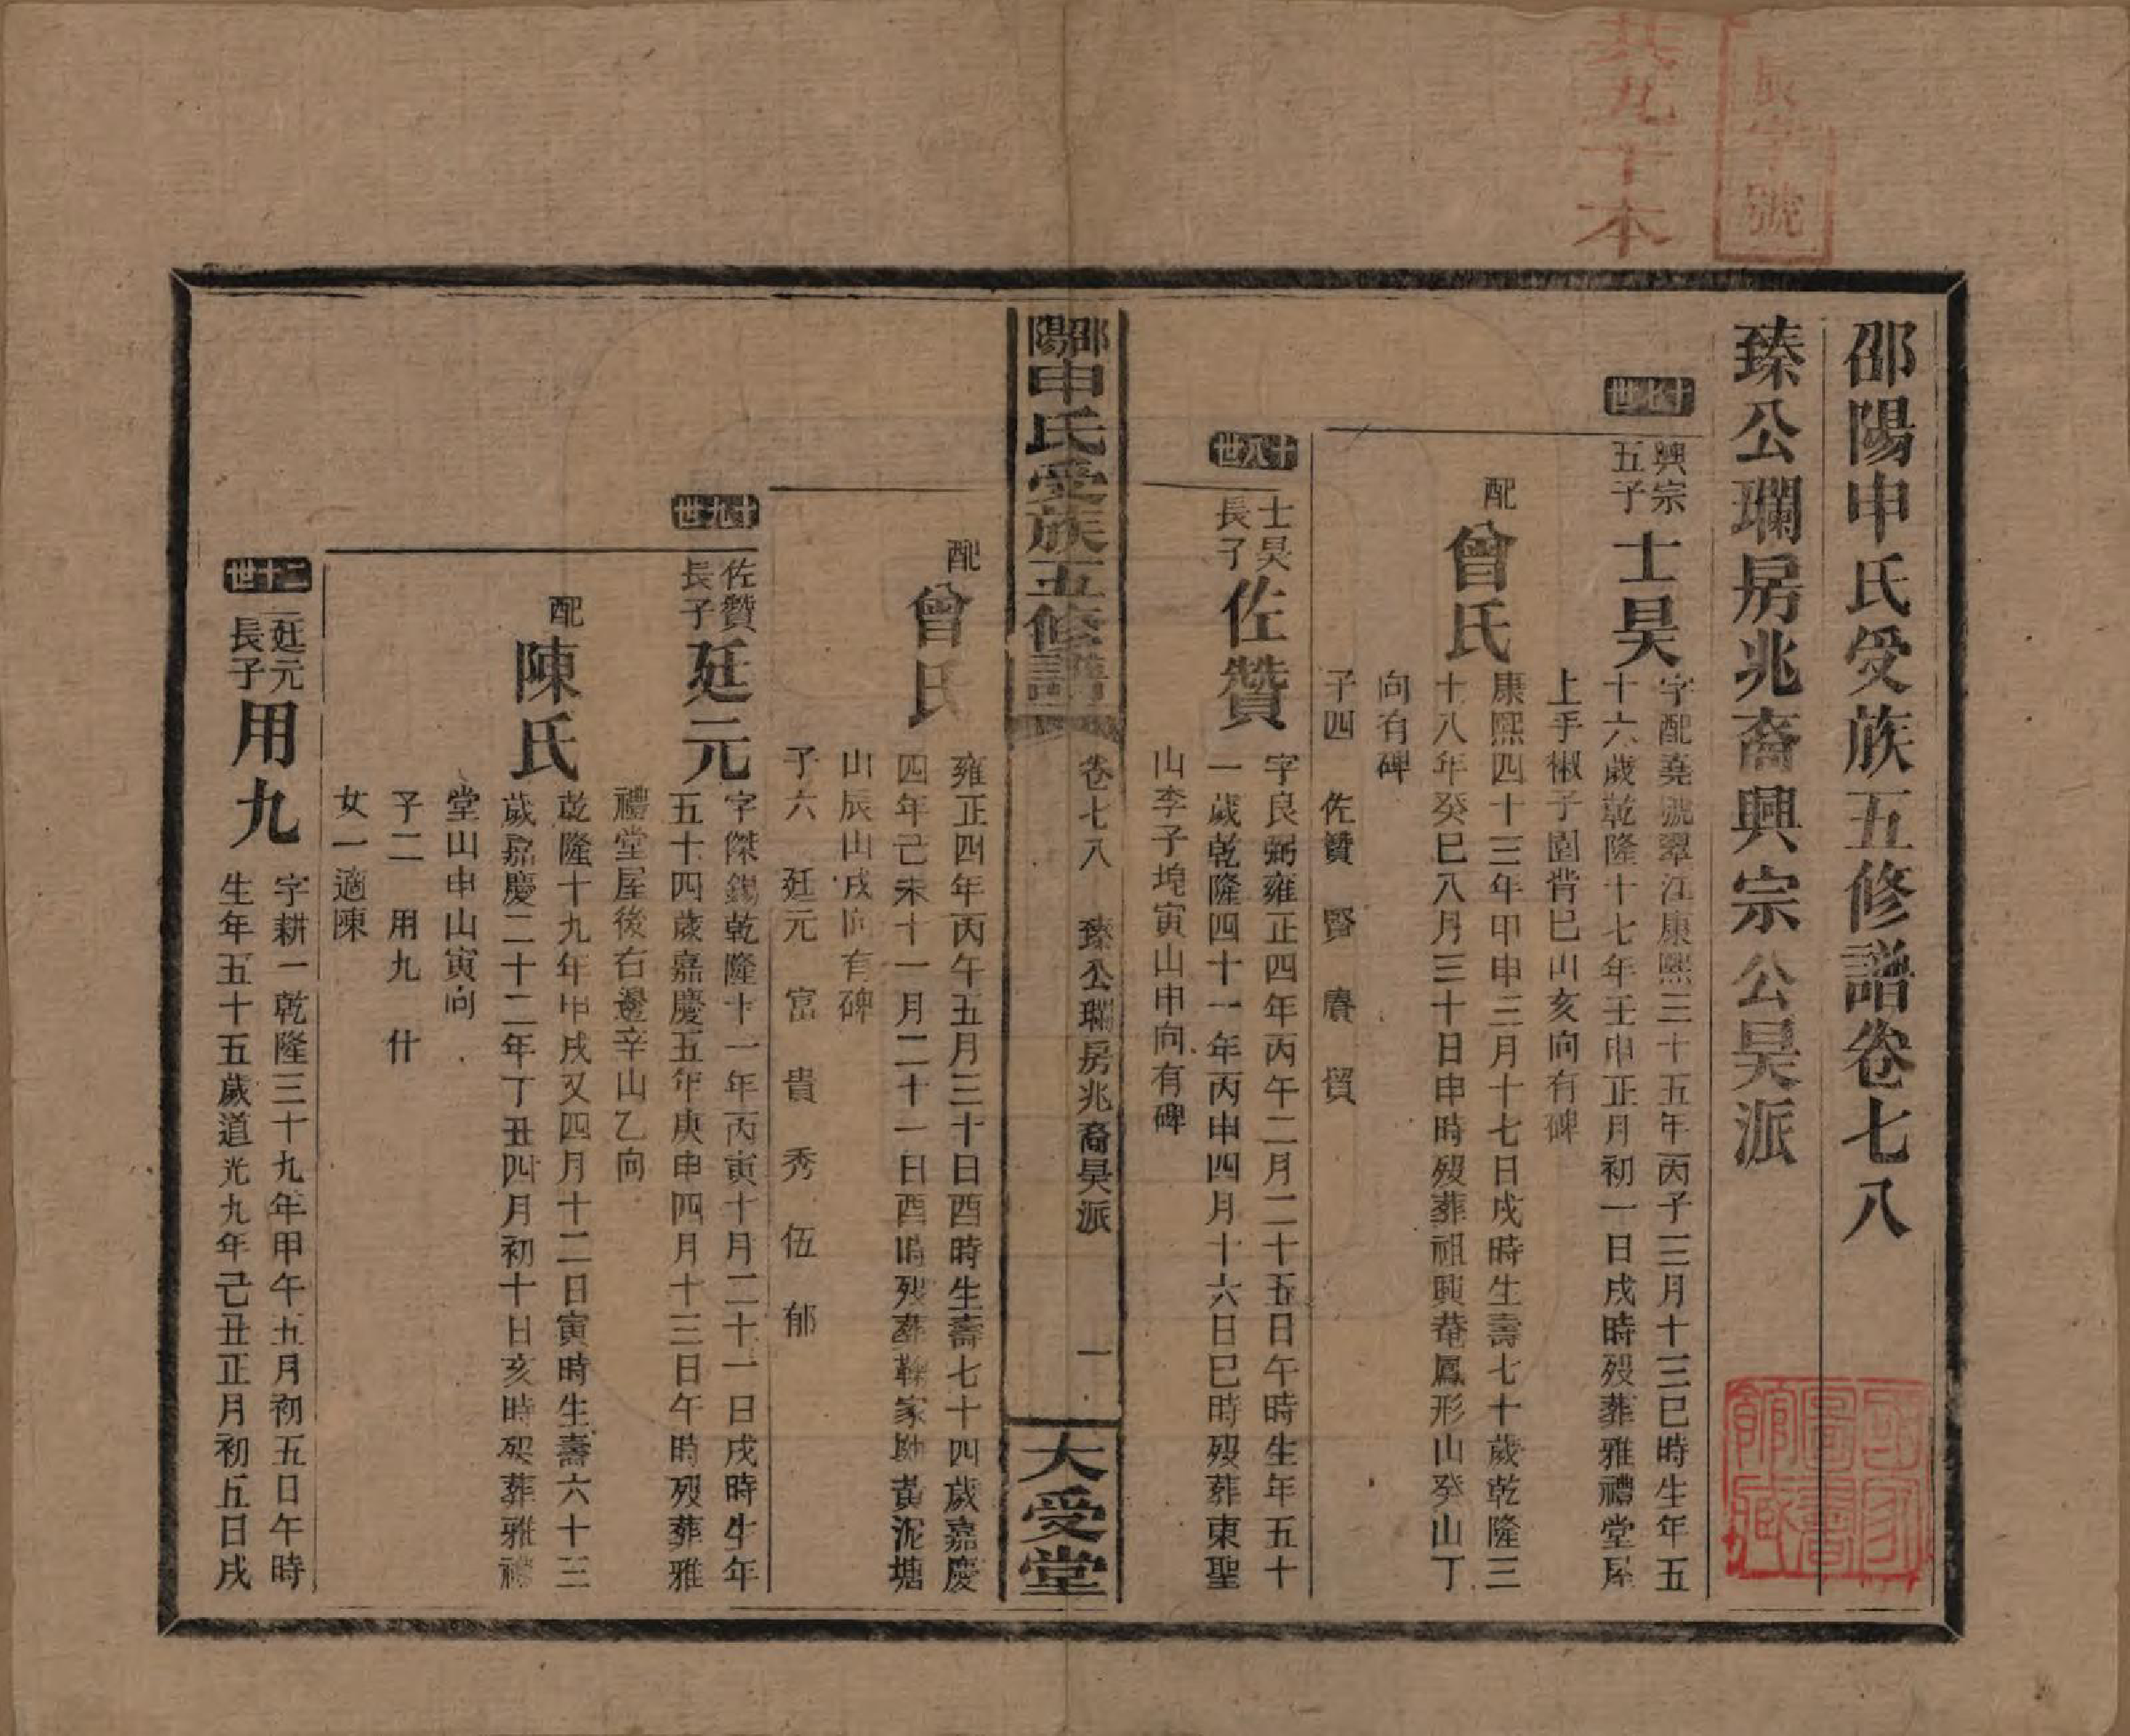 共九十本
號
邵陽申氏受族五修譜卷七八
臻公瓓房兆裔興宗公昊派
十七世
興宗
五子
士昊
字配堯號翠江康熙三十五年丙子三月十三巳時生年五
十六歲乾隆十七年壬申正月初一日戌時殁葬雅禮堂屋
上手椒子園背巳山亥向有碑
配
曾氏
康熙四十三年甲申三月十七日戌時生壽七十歲乾隆三
十八年癸巳八月三十日申時殁葬祖興菴鳳形山癸山丁
向有碑
子四 佐贊 賢 賡 貿
十八世
士昊
長子
佐贊
字良弼雍正四年丙午二月二十五日午時生年五十
一歲乾隆四十一年丙申四月十六日巳時殁葬東聖
山李子堍寅山申向有碑
邵陽申氏受族五修譜
卷七八 臻公瓓房兆裔昊派
一
大受堂
配
曾氏
雍正四年丙午五月三十日酉時生壽七十四歲嘉慶
四年己未十一月二十一日酉時殁葬鞠家坳黃泥塘
山辰山戌向有碑
子六 廷元 富 貴 秀 伍 郁
十九世
佐贊
長子
廷元
字傑錫乾隆十一年丙寅十月二十一日戌時生年
五十四歲嘉慶五年庚申四月十三日午時殁葬雅
禮堂屋後右邊辛山乙向
配
陳氏
乾隆十九年甲戌又四月十二日寅時生壽六十三
歲嘉慶二十二年丁丑四月初十日亥時殁葬雅禮
堂山申山寅向
子二 用九 什
女一適陳
二十世
廷元
長子
用九
字耕一乾隆三十九年甲午五月初五日午時
生年五十五歲道光九年己丑正月初五日戌
國家圖書館藏